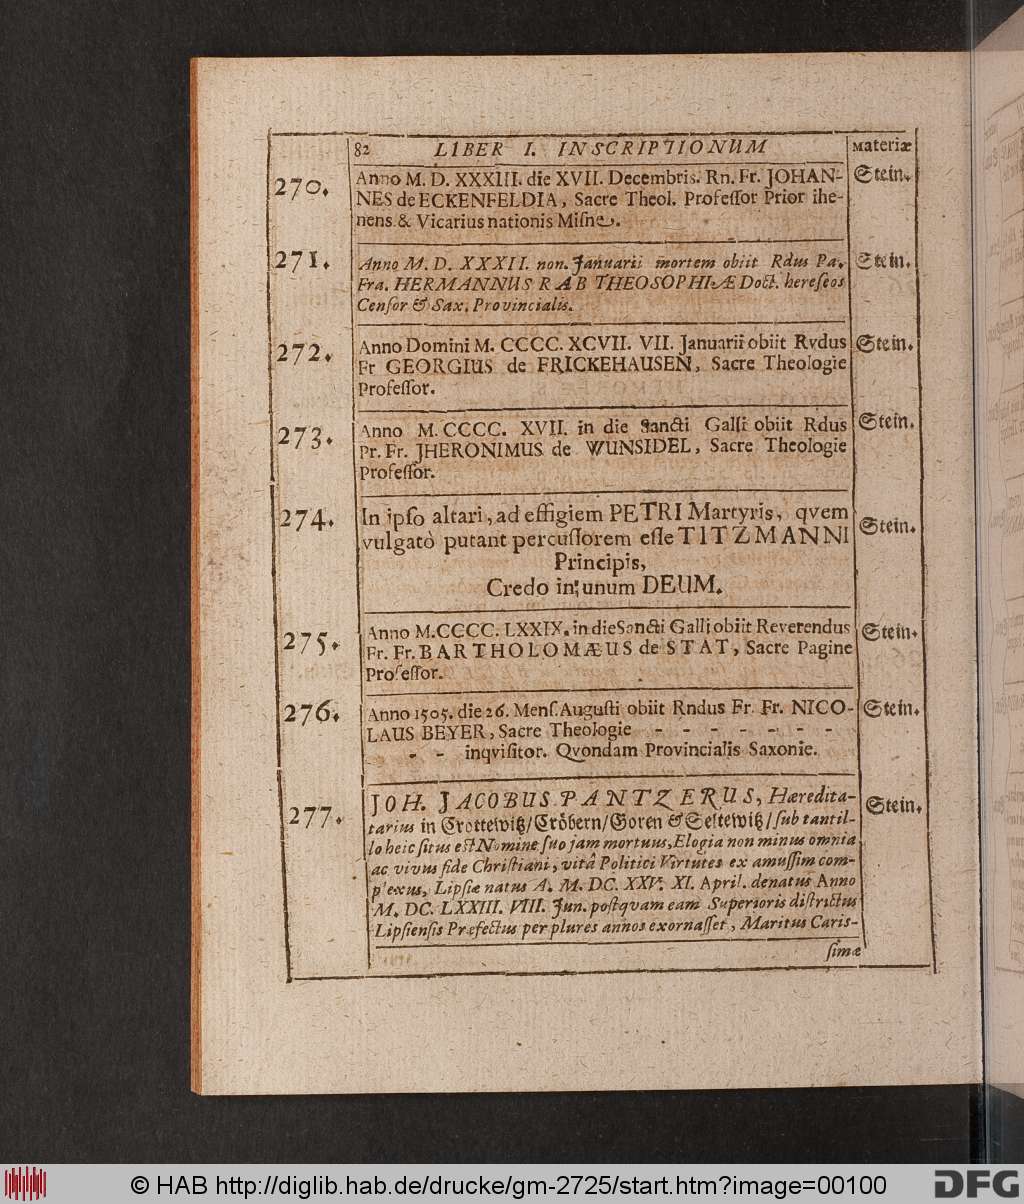 82 LIBER I. INSCRIPTIONUM Materiæ
270. Anno M. D. XXXIII. die XVII. Decembris. Rn. Fr. JOHAN- Stein.
NES de ECKENFELDIA, Sacre Theol. Professor Prior ihe-
nens. & Vicarius nationis Misne.
271. Anno M. D. XXXII. non. Januarii mortem obiit Rdus Pa. Stein.
Fra. HERMANNUS RAB THEOSOPHIÆ Doct. hereseos
Censor & Sax. Provincialis.
272. Anno Domini M. CCCC. XCVII. VII. Januarii obiit Rvdus Stein.
Fr GEORGIUS de FRICKEHAUSEN, Sacre Theologie
Professor.
273. Anno M. CCCC. XVII. in die Sancti Galli obiit Rdus Stein.
Pr. Fr. JHERONIMUS de WUNSIDEL, Sacre Theologie
Professor.
274. In ipso altari, ad effigiem PETRI Martyris, qvem Stein.
vulgatò putant percussorem esse TITZMANNI
Principis,
Credo in unum DEUM.
275. Anno M.CCCC. LXXIX. in die Sancti Galli obiit Reverendus Stein.
Fr. Fr. BARTHOLOMÆUS de STAT, Sacre Pagine
Professor.
276. Anno 1505. die 26. Mens. Augusti obiit Rndus Fr. Fr. NICO- Stein.
LAUS BEYER, Sacre Theologie - - - - - - -
- - inqvisitor. Qvondam Provincialis Saxonie.
277. JOH. JACOBUS PANTZERUS, Hæredita- Stein.
tarius in Crottewitz/Cröbern/Goren & Sestewitz/ sub tantil-
lo heic situs est Nomine suo jam mortuus, Elogia non minus omnia
ac vivus fide Christiani, vitâ Politici Virtutes ex amussim com-
plexus, Lipsiæ natus A. M. DC. XXV. XI. April. denatus Anno
M. DC. LXXIII. VIII. Jun. postqvam eam Superioris districtus
Lipsiensis Præfectus per plures annos exornasset, Maritus Caris-
simæ
© HAB http://diglib.hab.de/drucke/gm-2725/start.htm?image=00100
DFG